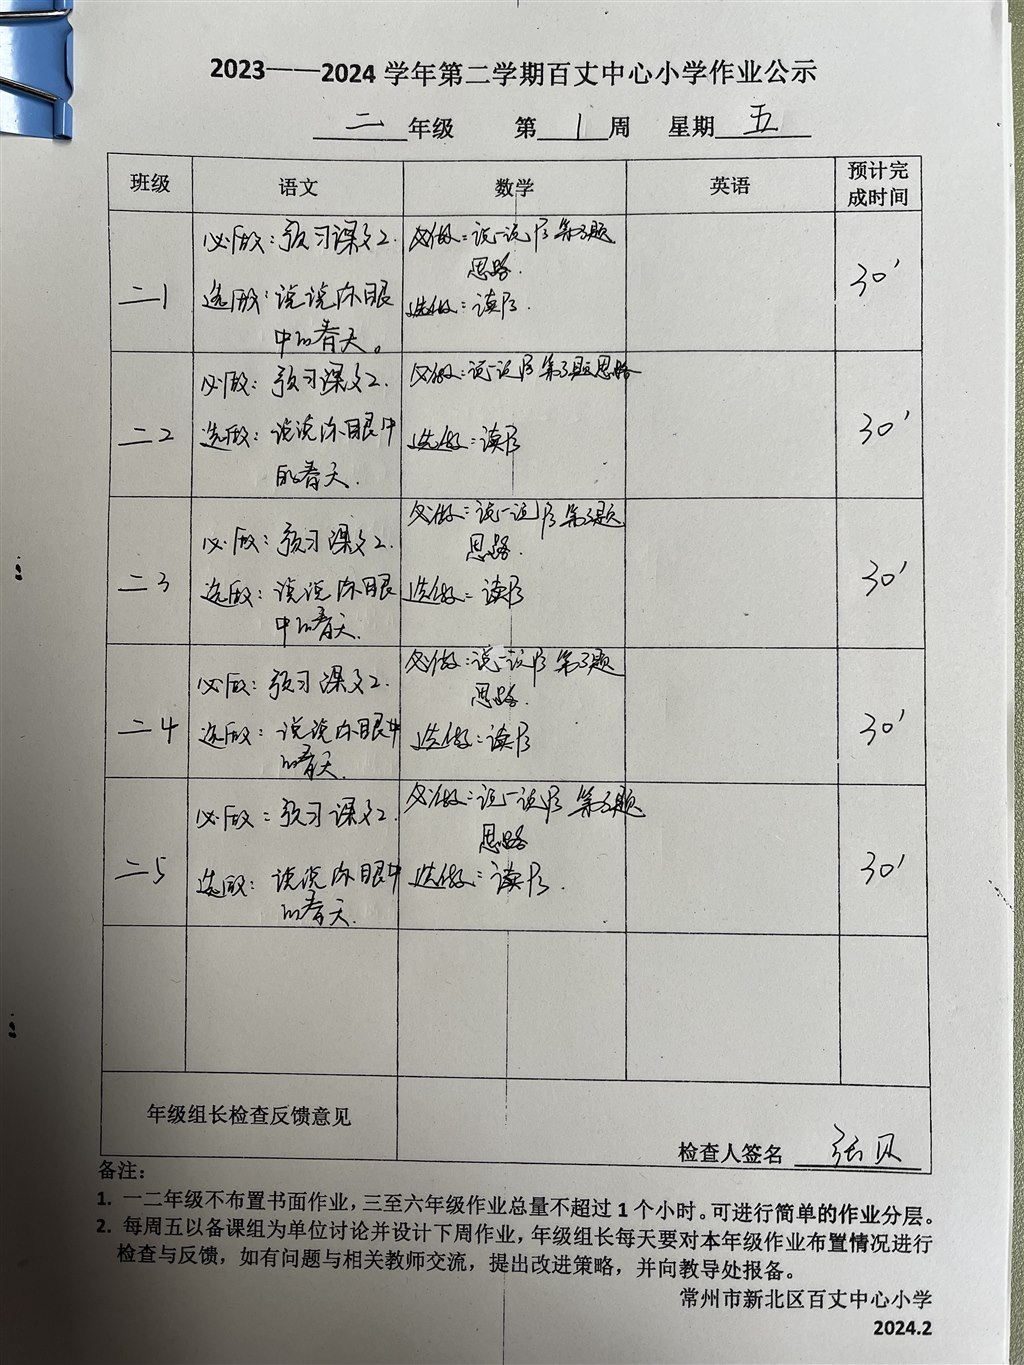 2023——2024 学年第二学期百丈中心小学作业公示
二 年级 第 1 周 星期 五
班级 语文 数学 英语 预计完成时间
二1
必做：预习课文2.
选做：说说你眼
中的春天。
必做：说一说 第3题
思路.
选做：读
30'
二2
必做：预习课文2.
选做：说说你眼中
的春天.
必做：说一说 第3题思路
选做：读
30'
二3
必做：预习课文2.
选做：说说你眼
中的春天.
必做：说一说 第3题
思路.
选做：读
30'
二4
必做：预习课文2.
选做：说说你眼中
的春天.
必做：说一说 第3题
思路.
选做：读
30'
二5
必做：预习课文2.
选做：说说你眼中
的春天.
必做：说一说 第3题
思路
选做：读
30'
年级组长检查反馈意见
检查人签名 张贝
备注：
1. 一二年级不布置书面作业，三至六年级作业总量不超过 1 个小时。可进行简单的作业分层。
2. 每周五以备课组为单位讨论并设计下周作业，年级组长每天要对本年级作业布置情况进行
检查与反馈，如有问题与相关教师交流，提出改进策略，并向教导处报备。
常州市新北区百丈中心小学
2024.2